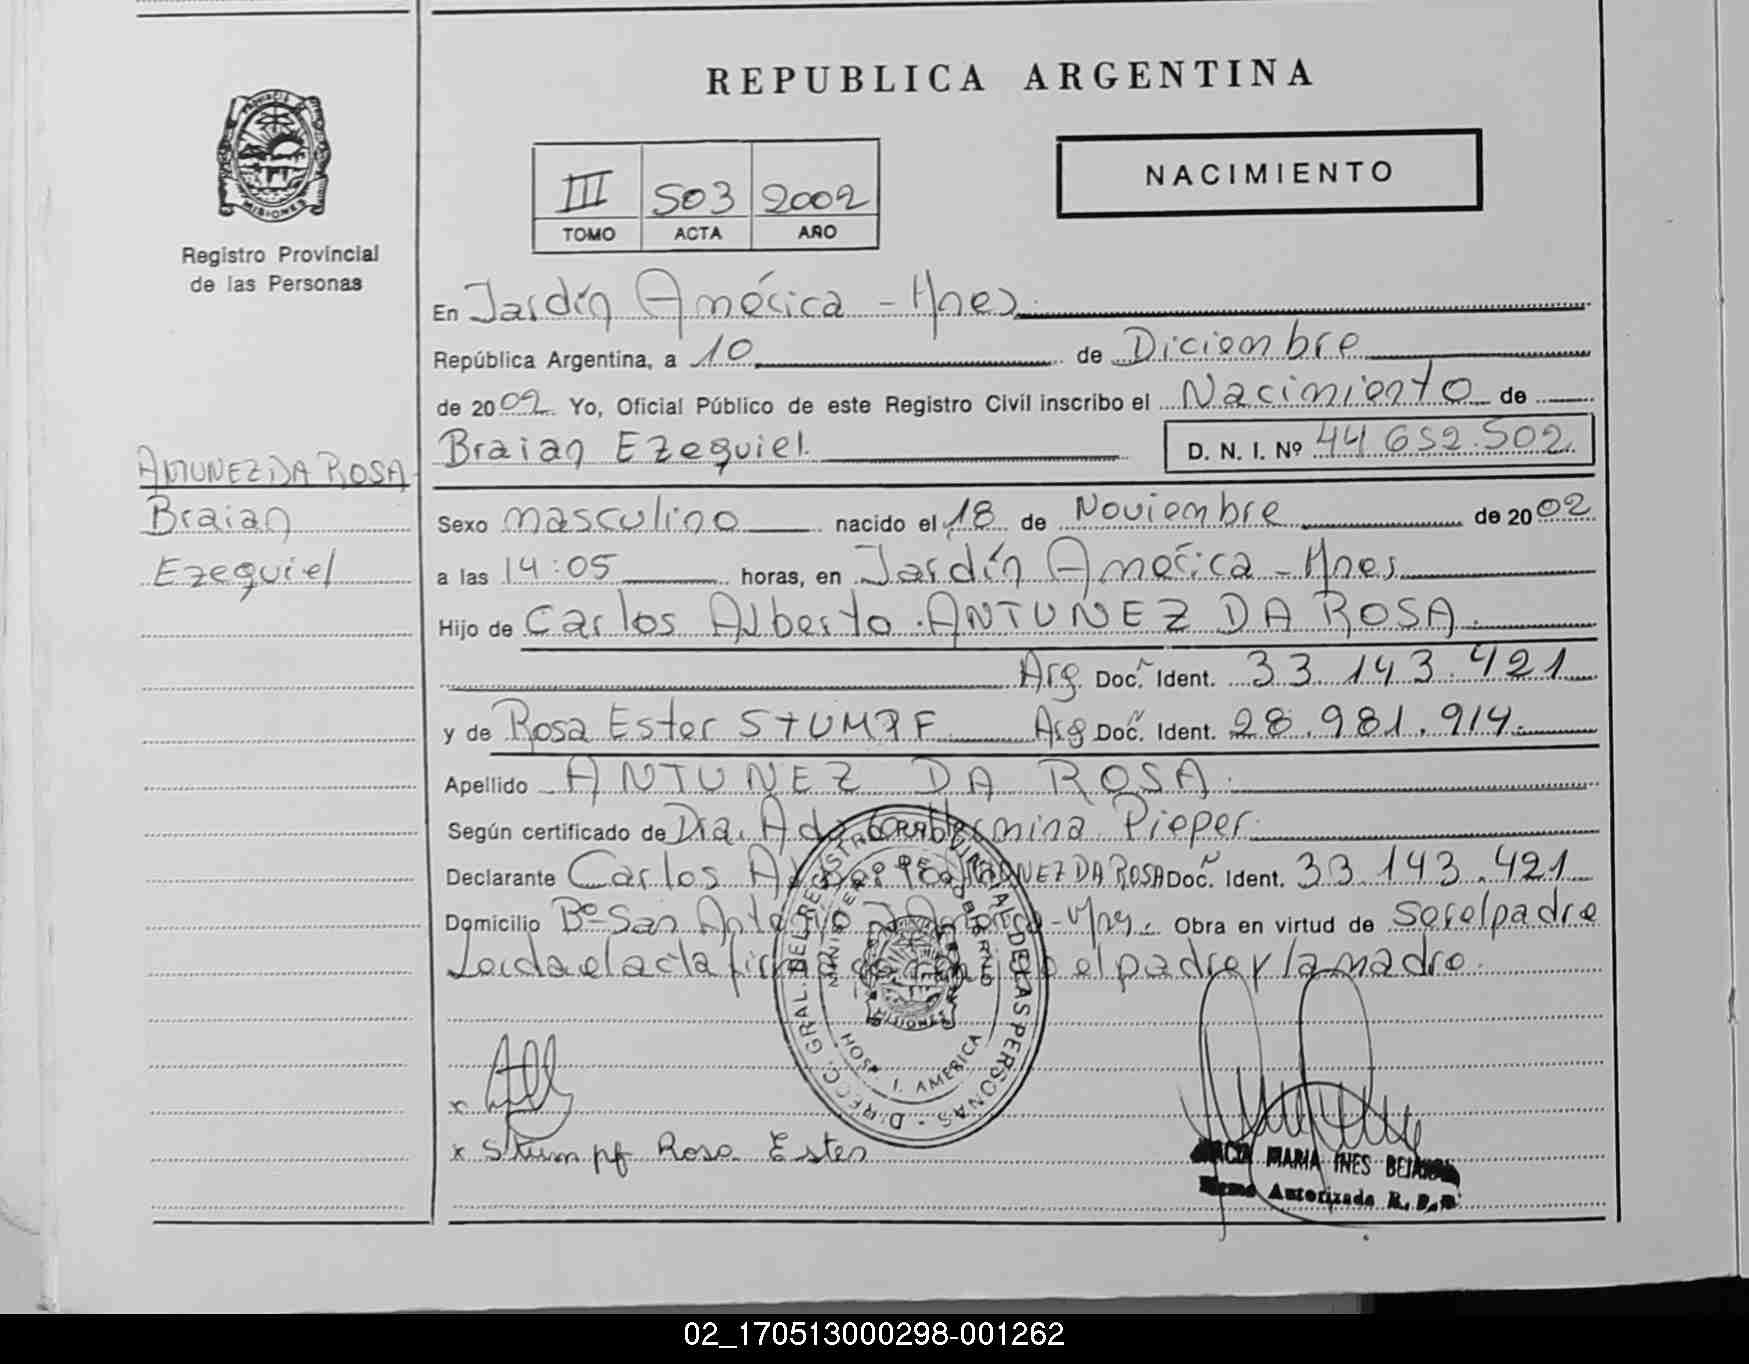 REPUBLICA ARGENTINA
PROVINCIA DE
MISIONES
Registro Provincial
de las Personas
III 503 2002
TOMO ACTA AÑO
NACIMIENTO
En Jardín América - Mnes
República Argentina, a 10 de Diciembre
de 2002 Yo, Oficial Público de este Registro Civil inscribo el Nacimiento de
Braian Ezequiel D. N. I. Nº 44.652.502.
ANTUNEZ DA ROSA
Braian
Ezequiel
Sexo masculino nacido el 18 de Noviembre de 2002
a las 14:05 horas, en Jardín América - Mnes.
Hijo de Carlos Alberto ANTUNEZ DA ROSA.
Arg Doc. Ident. 33.143.421
y de Rosa Ester STUMPF Arg Doc. Ident. 28.981.914.
Apellido ANTUNEZ DA ROSA.
Según certificado de Dra. Hermina Pieper.
Declarante Carlos ANTUNEZ DA ROSA Doc. Ident. 33.143.421
Domicilio Bº San Antonio - Mnes. Obra en virtud de ser el padre
Leida el acta el padre y la madre.
DIRECC. GRAL. DEL REGISTRO PROVINCIAL DE LAS PERSONAS
MINISTERIO DE GOBIERNO
MISIONES
HOSP. J. AMERICA
x
x Stumpf Rosa Ester
MARIA INES
Firma Autorizada R. P. P.
02_170513000298-001262